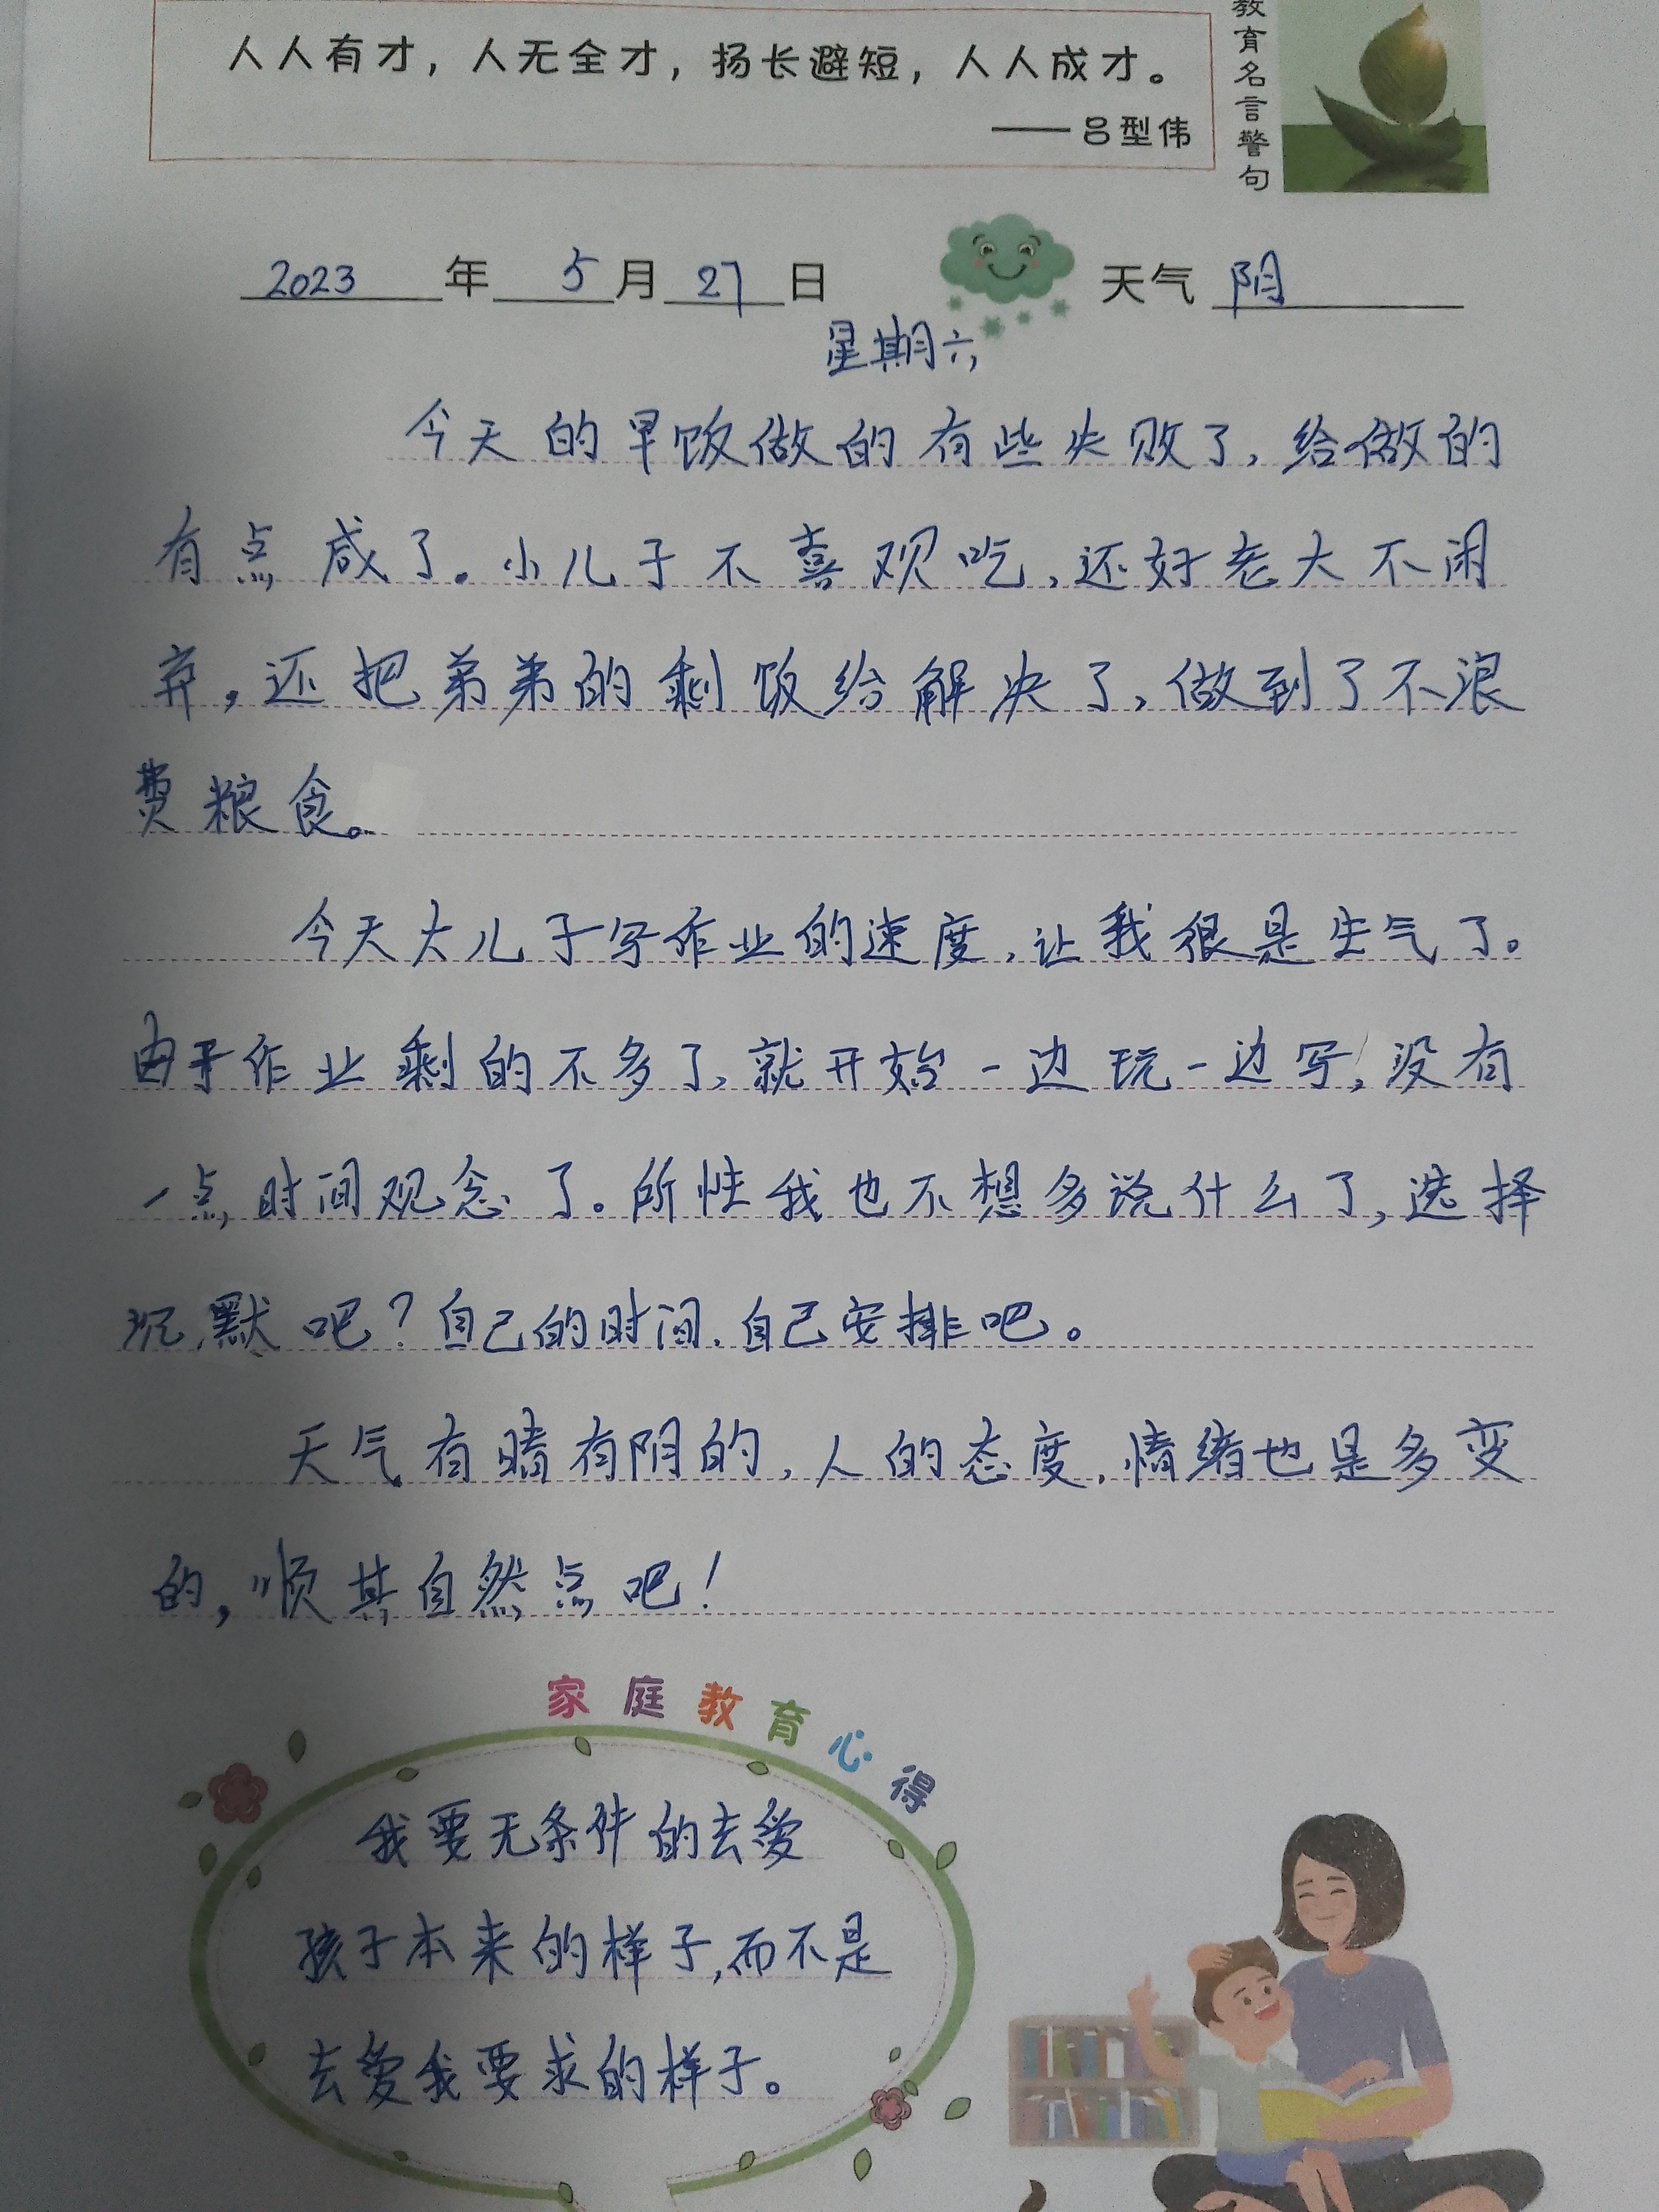 人人有才，人无全才，扬长避短，人人成才。
——吕型伟
教育名言警句
2023年 5月27日 天气 阴
星期六
今天的早饭做的有些失败了，给做的
有点咸了。小儿子不喜观吃，还好老大不闲
弃，还把弟弟的剩饭给解决了，做到了不浪
费粮食。
今天大儿子写作业的速度，让我很是生气了。
由于作业剩的不多了，就开始一边玩一边写，没有
一点时间观念了。所性我也不想多说什么了，选择
沉默吧？自己的时间，自己安排吧。
天气有晴有阴的，人的态度，情绪也是多变
的，顺其自然点吧！
家庭教育心得
我要无条件的去爱
孩子本来的样子，而不是
去爱我要求的样子。